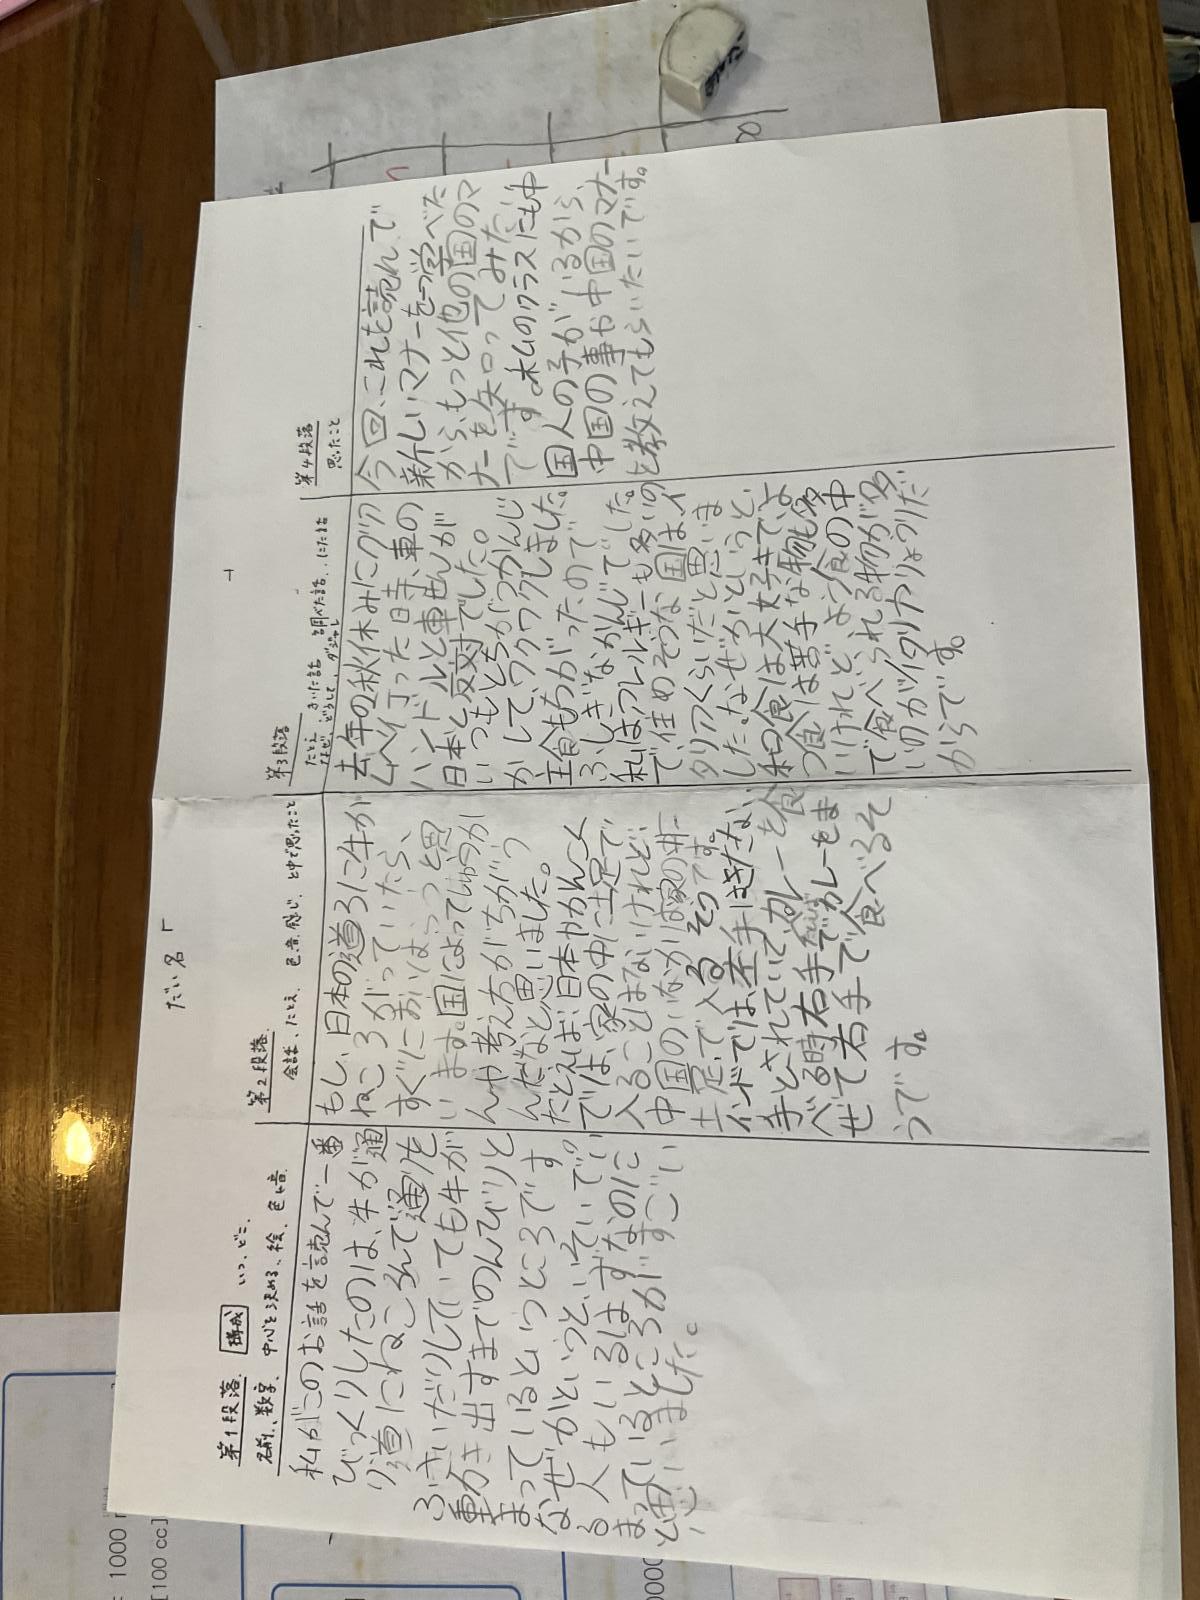 だい名「
」
第1段落
構成
いつ、どこ、
名前、数字、中心を決める、絵、色や音
私がこのお話を読んで一番
びっくりしたのは、牛が通
り道にねころんで通りを
ふさいだりしていても牛が
動き出すまでのんびりと
まっているというところです。
なぜかというと、いそいでい
る人もいるはずなのに
まっているところがすごい
と思いました。
第2段落
会話、たとえ、色、音、感じ、と中で思ったこと
もし、日本の道ろに牛が
ねころがっていたら、
すぐにおいはらっと思
います。国によってしゅうか
んや考え方がちがう
んだなと思いました。
たとえば、日本やかんこく
では、家の中に土足で
入ることはないけれど、
中国のいなかは家の中に
土足で入るそうです。
インドでは、左手はきたない
手とされていて、カレーを食
べる時右手でカレーをま
ぜて右手で食べるそ
うです。
第3段落
たとえ、きいた話、調べた話、にた話
なぜ、どうして、ダジャレ
去年の秋休みにグア
ムへ行った時、車の
ハンドルと車せんが
日本と反対でした。
いつもとちがうかんじ
がして、ワクワクしました。
主食もちがったので
ふしぎなかんじでした。
私はアレルギーも多いの
で、住めそうな国はイ
タリアくらいだと思いま
した。なぜかというと、
和食は大好きで、よ
う食は苦手な物も多
いけれど、よう食の中
で食べられる物が多
いのがイタリアりょうりだ
からです。
第4段落
思ったこと
今回、これを読んで
新しいマナーを一つ学べた
から、もっと他の国のマ
ナーを知ってみたい
です。私のクラスにも中
国人の子がいるから、
中国の事や中国のマナー
を教えてもらいたいです。
1000
[100 cc]
8